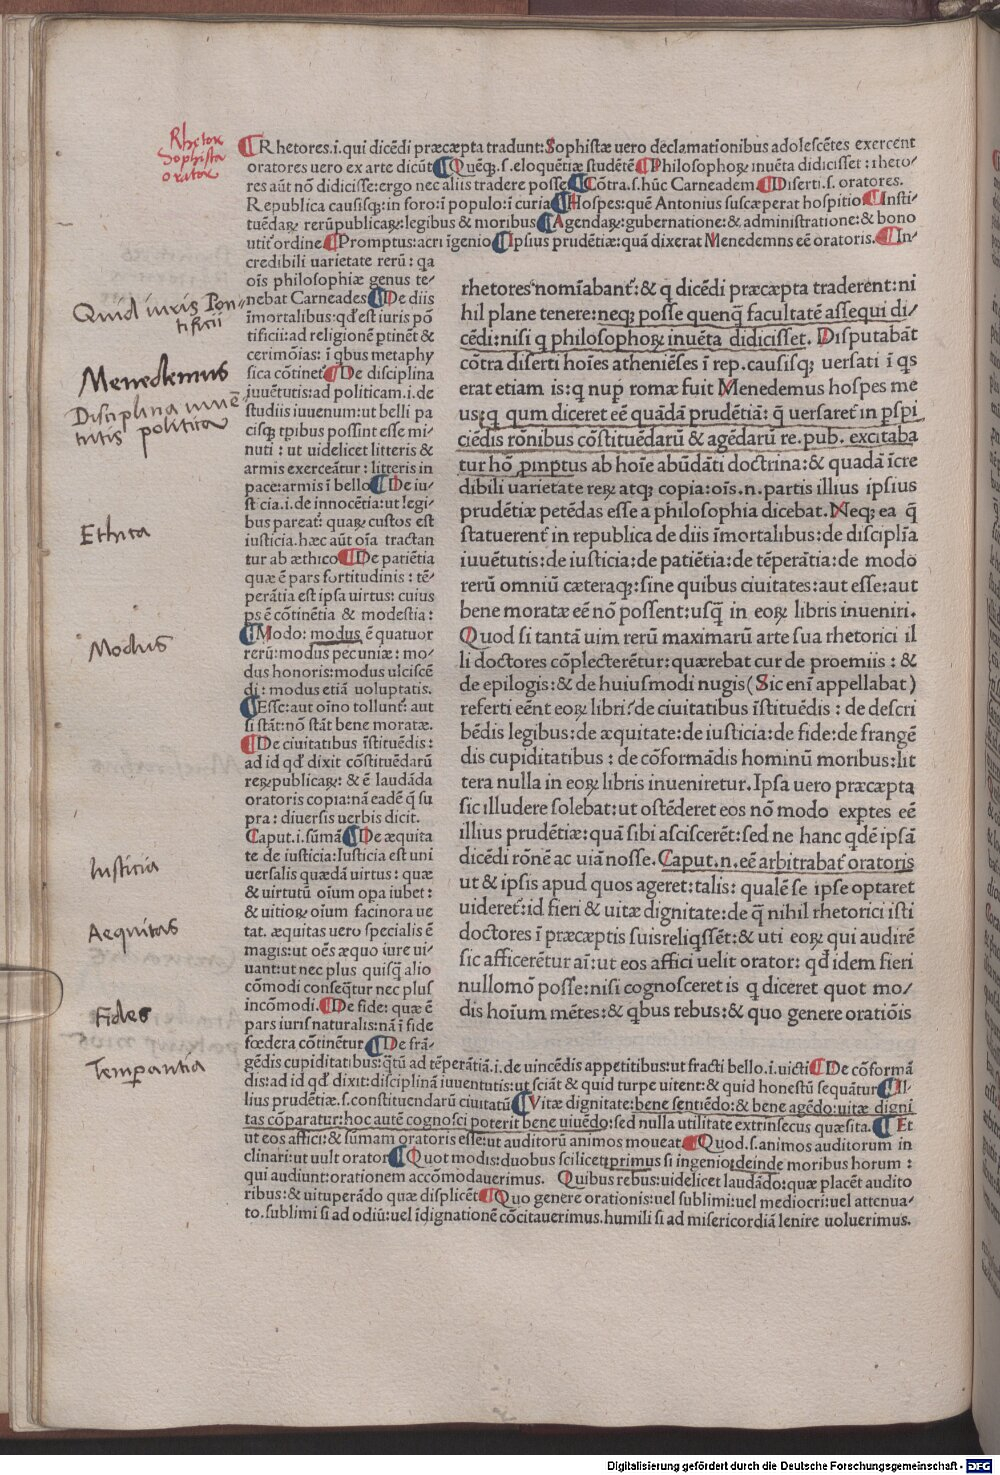 Rhetor
Sophista
orator
¶Rhetores.i.qui dicēdi præcæpta tradunt:Sophistæ uero declamationibus adolescētes exercent
oratores uero ex arte dicūt¶Quēq;.s.eloquētiæ studētē¶Philosophoꝝ inuēta didicisset:rheto/
res aūt nō didicisse:ergo nec aliis tradere posse¶Cōtra.s.hūc Carneadem¶Diserti.s.oratores.
Republica causisq;:in foro:ī populo:ī curia¶Hospes:quē Antonius suscæperat hospitio¶Insti/
tuēdaꝝ rerūpublicaꝝ:legibus & moribus¶Agendaꝝ:gubernatione:& administratione:& bono
utit̄ ordine¶Promptus:acri īgenio¶Ipsius prudētiæ:quā dixerat Menedemns eē oratoris.¶In/
credibili uarietate rerū: qa
oīs philosophiæ genus te/
nebat Carneades¶De diis
īmortalibus:qđ est iuris pō
tificii:ad religionē ptinēt &
cerimōias: ī qbus metaphy
sica cōtinet̄¶De disciplina
iuuētutis:ad politicam.i.de
studiis iuuenum:ut belli pa
cisq; tpibus possint esse mi/
nuti : ut uidelicet litteris &
armis exerceātur : litteris in
pace:armis ī bello¶De iu/
sticia.i.de innocētia:ut legi/
bus pareat̄: quaꝝ custos est
iusticia.hæc aūt oīa tractan
tur ab æthico¶De patiētia
quæ ē pars fortitudinis : tē/
perātia est ipsa uirtus: cuius
ps ē cōtinētia & modestia:
¶Modo: modus ē quatuor
rerū:modus pecuniæ: mo/
dus honoris:modus ulciscē
di : modus etiā uoluptatis.
¶Esse:aut oīno tollunt̄: aut
si stāt:nō stāt bene moratæ.
¶De ciuitatibus īstituēdis:
ad id qđ dixit cōstituēdarū
reꝝpublicaꝝ: & ē laudāda
oratoris copia:nā eadē q̄ su
pra: diuersis uerbis dicit.
Caput.i.sūmā¶De æquita
te de iusticia:Iusticia est uni
uersalis quædā uirtus: quæ
& uirtutū oīum opa iubet:
& uitioꝝ oīum facinora ue
tat. æquitas uero specialis ē
magis:ut oēs æquo iure ui/
uant:ut nec plus quisq̄ alio
cōmodi conseq̄tur nec plus
incōmodi.¶De fide: quæ ē
pars iuris naturalis:nā ī fide
fœdera cōtinētur¶De frā/
gēdis cupiditatibus:q̄tū ad tēperātiā.i.de uincēdis appetitibus:ut fracti bello.i.uicti¶De cōformā
dis:ad id qđ dixit:disciplinā iuuentutis:ut sciāt & quid turpe uitent:& quid honestū sequātur¶Il/
lius prudētiæ.s.constituendarū ciuitatū¶Vitæ dignitate:bene sentiēdo:& bene agēdo:uitæ digni
tas cōparatur:hoc autē cognosci poterit bene uiuēdo:sed nulla utilitate extrinsecus quæsita.¶Et
ut eos affici:& sūmam oratoris esse:ut auditorū animos moueat¶Quod.s.animos auditorum in
clinari:ut uult orator¶Quot modis:duobus scilicet:primus si ingenio:deinde moribus horum :
qui audiunt:orationem accōmodauerimus. Quibus rebus:uidelicet laudādo:quæ placēt audito
ribus:& uituperādo quæ displicēt¶Quo genere orationis:uel sublimi:uel mediocri:uel attenua/
to.sublimi si ad odiū:uel īdignationē cōcitauerimus.humili si ad misericordiā lenire uoluerimus.
rhetores nomīabant̄:& q dicēdi præcæpta traderent:ni
hil plane tenere:neq; posse quenq̄ facultatē assequi di/
cēdi:nisi q philosophoꝝ inuēta didicisset. Disputabāt
cōtra diserti hoīes atheniēses ī rep.causisq; uersati ī qs
erat etiam is:q nup romæ fuit Menedemus hospes me
us:q qum diceret eē quādā prudētiā: q̄ uersaret̄ in pspi
ciēdis rōnibus cōstituēdarū & agēdarū re.pub. excitaba
tur hō pmptus ab hoīe abūdāti doctrina:& quadā īcre
dibili uarietate reꝝ atq; copia:oīs.n.partis illius ipsius
prudētiæ petēdas esse a philosophia dicebat. Neq; ea q̄
statuerent̄ in republica de diis īmortalibus:de disciplīa
iuuētutis:de iusticia:de patiētia:de tēperātia:de modo
rerū omniū cæteraq;:sine quibus ciuitates:aut esse:aut
bene moratæ eē nō possent:usq̄ in eoꝝ libris inueniri.
Quod si tantā uim rerū maximarū arte sua rhetorici il
li doctores cōplecterētur:quærebat cur de proemiis : &
de epilogis:& de huiusmodi nugis(Sic enī appellabat)
referti eēnt eoꝝ libri:de ciuitatibus īstituēdis : de descri
bēdis legibus:de æquitate:de iusticia:de fide:de frangē
dis cupiditatibus : de cōformādis hominū moribus:lit
tera nulla in eoꝝ libris inueniretur.Ipsa uero præcæpta
sic illudere solebat:ut ostēderet eos nō modo exptes eē
illius prudētiæ:quā sibi asciscerēt:sed ne hanc qdē ipsā
dicēdi rōnē ac uiā nosse.Caput.n.eē arbitrabat̄ oratoris
ut & ipsis apud quos ageret:talis: qualē se ipse optaret
uideret̄:id fieri & uitæ dignitate:de q̄ nihil rhetorici isti
doctores ī præcæptis suis reliqssēt:& uti eoꝝ qui audirē
sic afficerētur aī:ut eos affici uelit orator: qđ idem fieri
nullomō posse:nisi cognosceret is q diceret quot mo/
dis hoīum mētes:& qbus rebus:& quo genere oratiōis
Quid iuris Pon-
tificii
Menedemus
Disciplina iuuē
tutis politica
Ethica
Modus
Iusticia
Aequitas
Fides
Temperantia
Digitalisierung gefördert durch die Deutsche Forschungsgemeinschaft - DFG